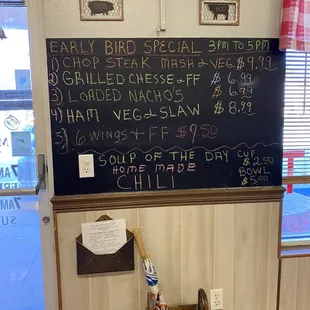 EARLY BIRD SPECIAL 3PM TO 5PM
1) CHOP STEAK MASH & VEG. $9.99
2) GRILLED CHESSE & FF $6.99
3) LOADED NACHO'S $6.99
4) HAM VEG & SLAW $8.99
5) 6 WINGS + FF $7.50
SOUP OF THE DAY
HOME MADE
CHILI
CUP
$2.50
BOWL
$5.00